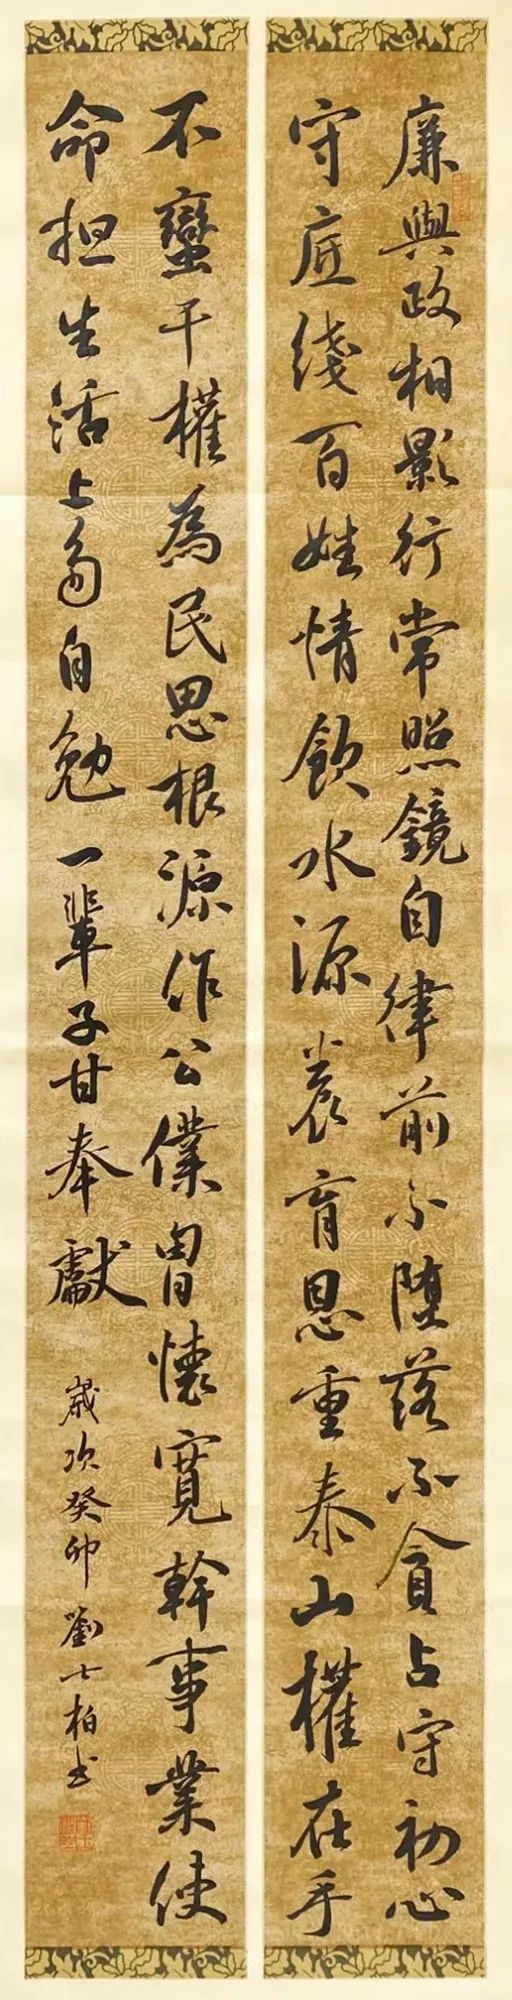 廉與政相影行常照鏡自律前不堕落不貪占守初心
守底綫百姓情飲水源养育恩重泰山權在手
不蠻干權為民思根源作公僕胷懷寬幹事業使
命担生活上多自勉一輩子甘奉獻
歲次癸卯劉士柏书